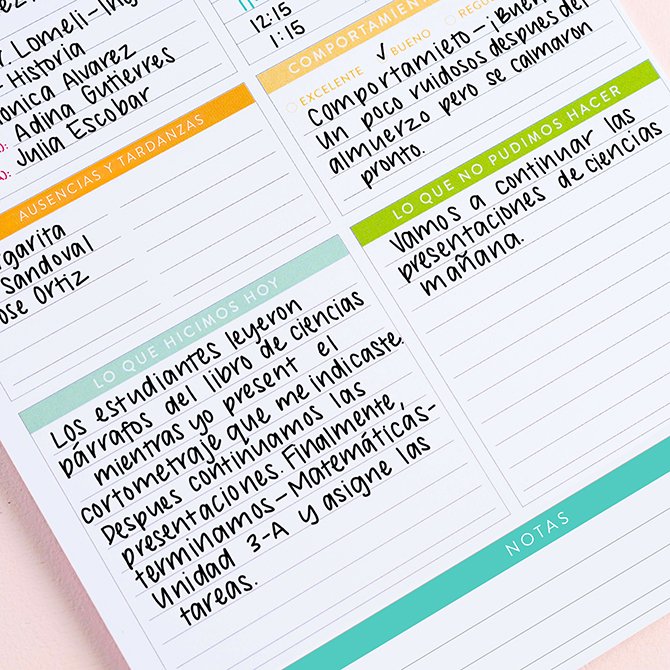 Lomeli-Ing
- Historia
onica Alvarez
Adina Gutierres
Julia Escobar
AUSENCIAS Y TARDANZAS
rgarita
Sandoval
ose Ortiz
LO QUE HICIMOS HOY
Los estudiantes leyeron
párrafos del libro de ciencias
mientras yo present el
cortometraje que me indicaste.
Despues continuamos las
presentaciones. Finalmente,
terminamos-Matemáticás-
Unidad 3-A y asigne las
tareas.
12:15
1:15
COMPORTAMIENT
EXCELENTE ✓ BUENO REGU
Comportamieto-¡Buen
Un poco ruidosos despues del
almuerzo pero se calmaron
pronto.
LO QUE NO PUDIMOS HACER
Vamos a continuar las
presentaciones de ciencias
mañana.
NOTAS